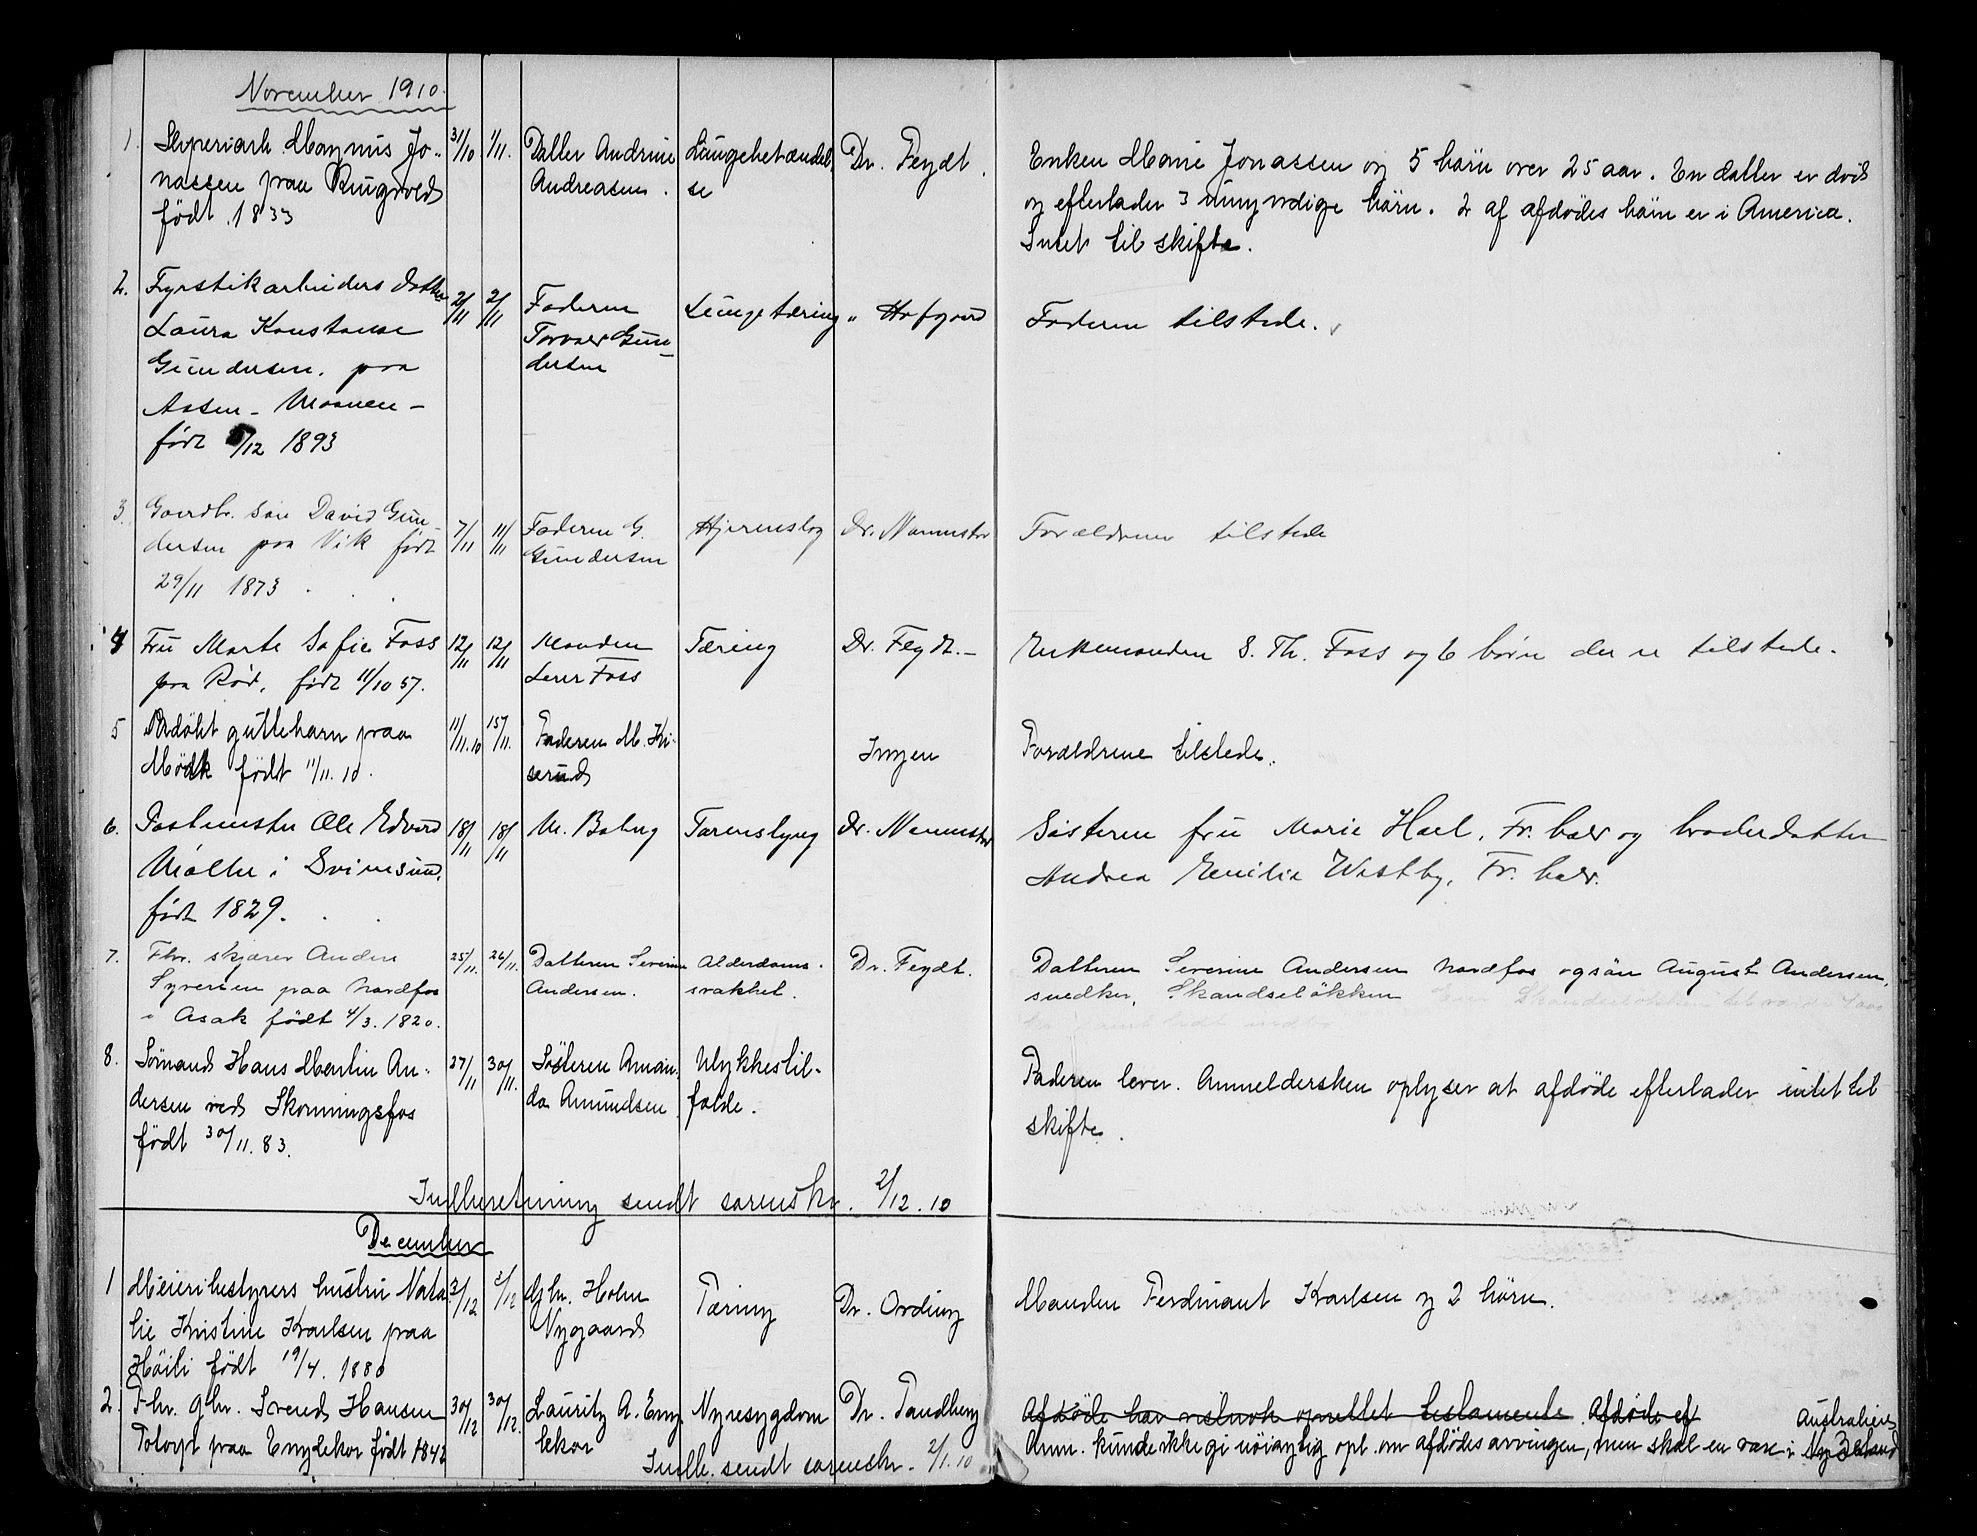 November 1910.
1. Magnus Jo-
nassen paa Ringvold
født 1833
31/10 1/11.
Datter Andrine
Andreasen.
Lungebetændel-
se
Dr. Feydt.
Enken Marie Jonassen og 5 børn over 25 aar. En datter er død
og efterlader 3 umyndige børn. 2 af afdødes børn er i America.
Intet til skifte.
2. Fyrstikarbeiders datter
Laura Konstanse
Gundersen. paa
Aasen - Moanen -
født /12 1893
2/11 2/11
Faderen
Torvald Gun-
dersen
Lungetæring
" Hofgaard
Faderen tilstede.
3. Gaardbr. søn David Gun-
dersen paa Vik født
29/11 1873
7/11 11/11
Faderen G.
Gundersen
Hjerneslag
Dr. Nannestad
Forældrene tilstede
4 Fru Marte Sofie Foss
paa Rød, født 11/10 57.
12/11 12/11
Manden
Lærer Foss
Tæring
Dr. Feydt.-
Enkemanden S. Th. Foss og 6 børn der er tilstede.
5 Udøbt guttebarn paa
født 11/11. 10.
11/11.10 15/11.
Faderen M. Ki-
serud
Ingen
Forældrene tilstede.
6. Postmester Ole Edvard
Møller i Svinesund,
født 1829.
18/11 18/11
M. Boberg
Tarmslyng
Dr. Nannestad
Søsteren fru Marie Hæl, Fr.hald og broderdatter
Andrea Emilie Westby, Fr.hald.
7. Fhv. skjærer Anders
Syversen paa Nordfos
i Asak født 4/3. 1820.
25/11. 26/11.
Datteren Severine
Andersen.
Alderdoms-
svakhet.
Dr. Feydt.
Datteren Severine Andersen Nordfos og søn August Andersen,
snedker, Skandseløkken
8. Sømand Hans Martin An-
dersen ved Skonningsfos
født 30/11. 83.
27/11 30/11.
Søsteren Aman-
da Amundsen
Ulykkestil-
fælde.
Faderen lever. Anmeldersken oplyser at afdøde efterlader intet til
skifte.
Indberetning sendt sorenskr. 2/12. 10
December
1 Meieribestyrers hustru Nata-
lie Kristine Karlsen paa
født 19/4. 1880
2/12 3/12
Gbr. Holm
Nygaard
Tæring
Dr. Ording
Manden Ferdinant Karlsen og 2 børn.
2. Fhv. gbr. Svend Hansen
Totorp paa Engelekor født 1842
30/12 30/12.
Lauritz A. Eng-
lekor
Nyresygdom
Dr. Tandberg
Afdøde har nok oprettet testamente Afdøde ef
Australien
Anm. kunde ikke gi nöiagtig opl. om afdødes arvingen, men skal en være i Ny Zeland
Indb. sendt sorenskr. 2/1. 10